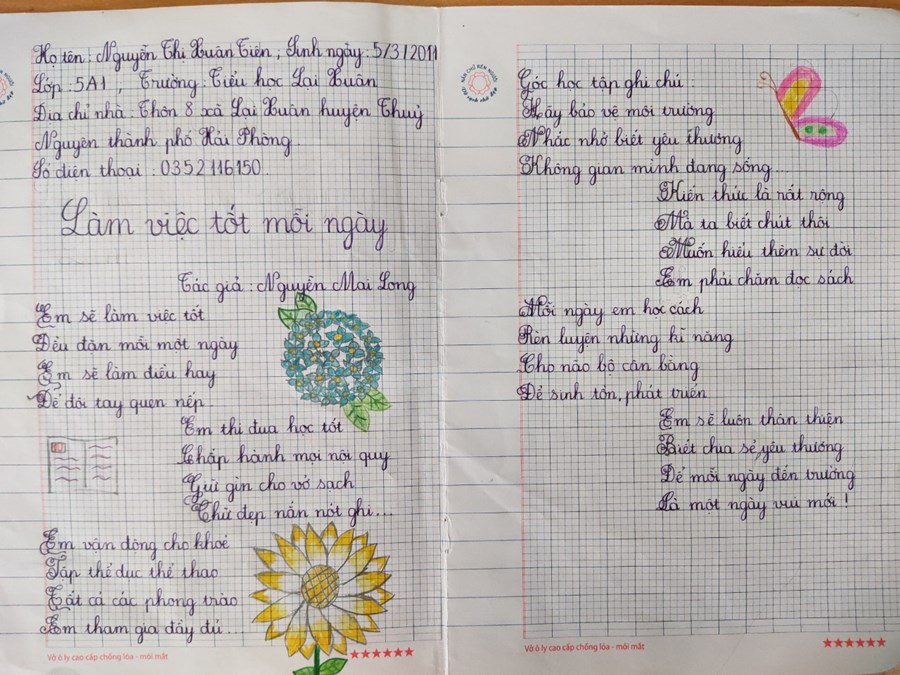 Họ tên: Nguyễn Thị Xuân Tiên, Sinh ngày: 5/3/2011
Lớp: 5A1, Trường: Tiểu học Lại Xuân
Địa chỉ nhà: Thôn 8 xã Lại Xuân huyện Thuỷ
Nguyên thành phố Hải Phòng.
Số điện thoại: 0352116150.
Làm việc tốt mỗi ngày
Tác giả: Nguyễn Mai Long
Em sẽ làm việc tốt
Đều đặn mỗi một ngày
Em sẽ làm điều hay
Để đôi tay quen nếp.
Em thi đua học tốt
Chấp hành mọi nội quy
Giữ gìn cho vở sạch
Chữ đẹp nắn nót ghi...
Em vận động cho khoẻ
Tập thể dục thể thao
Tất cả các phong trào
Em tham gia đầy đủ...
Vở ô ly cao cấp chống lóa - mỏi mắt
Góc học tập ghi chú:
Hãy bảo vệ môi trường
Nhắc nhở biết yêu thương
Không gian mình đang sống...
Kiến thức là rất rộng
Mà ta biết chút thôi
Muốn hiểu thêm sự đời
Em phải chăm đọc sách
Mỗi ngày em học cách
Rèn luyện những kĩ năng
Cho não bộ cân bằng
Để sinh tồn, phát triển
Em sẽ luôn thân thiện
Biết chia sẻ, yêu thương
Để mỗi ngày đến trường
Là một ngày vui mới!
Vở ô ly cao cấp chống lóa - mỏi mắt